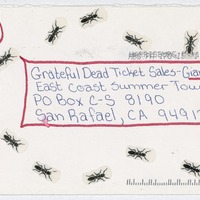 Grateful Dead Ticket Sales-
East Coast Summer Tou
PO Box C-S 8190
San Rafael, CA 9491